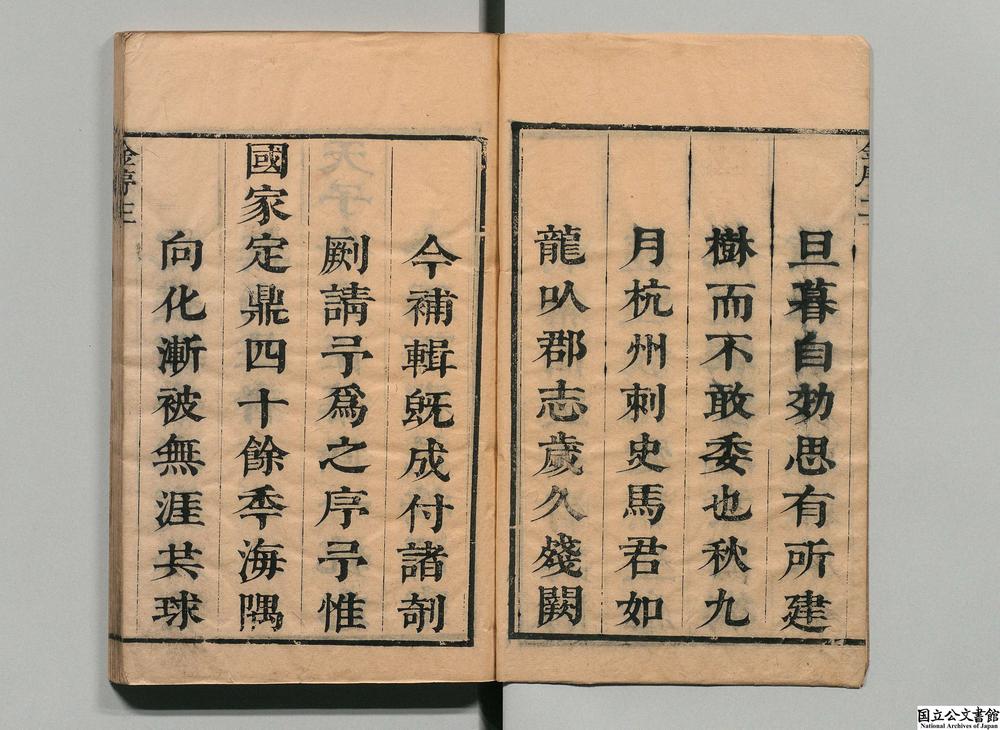 旦暮自効思有所建
樹而不敢委也秋九
月杭州刺史馬君如
龍㕥郡志歲久殘闕
今補輯旣成付諸剞
劂請予爲之序予惟
國家定鼎四十餘秊海隅
向化漸被無涯共球
国立公文書館
National Archives of Japan